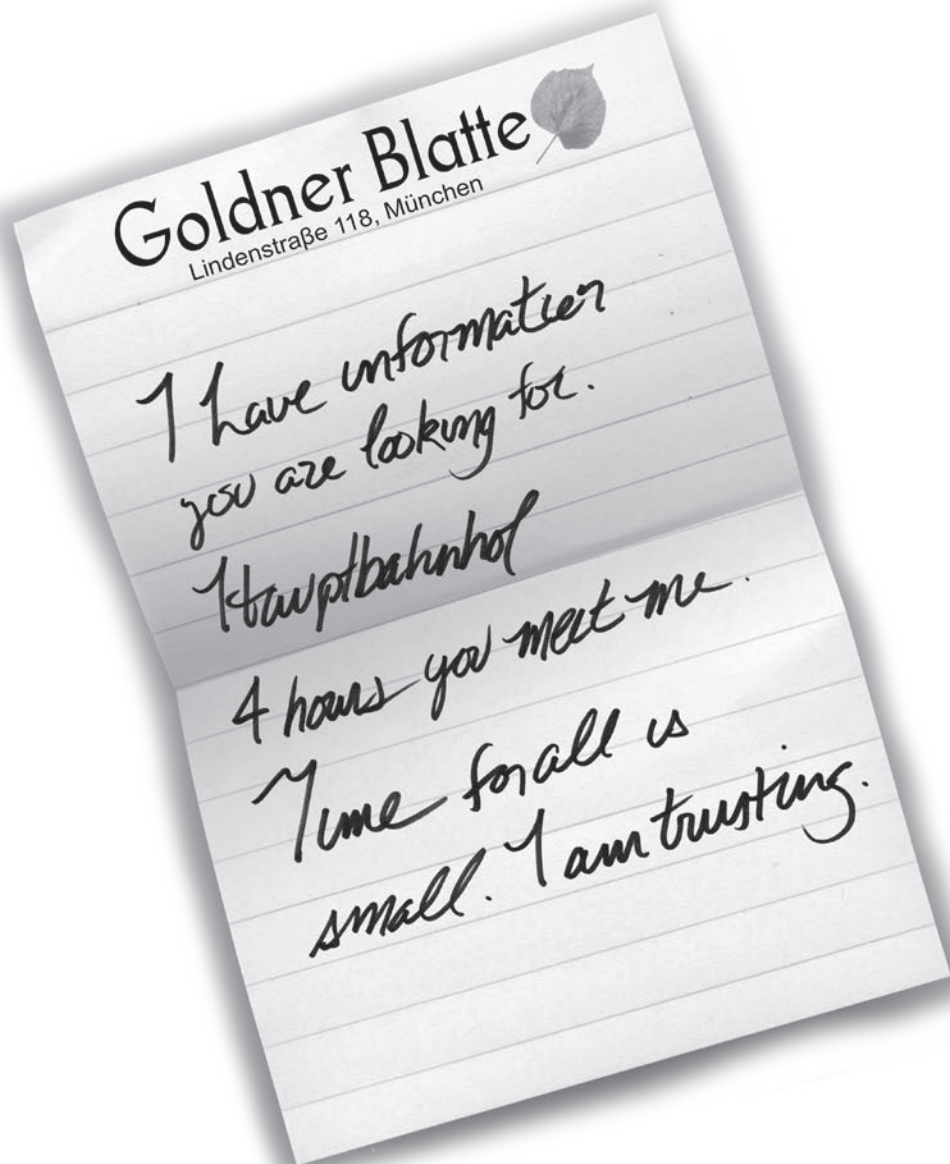 Goldner Blatte
Lindenstraße 118, München
I have information
you are looking for.
Hauptbahnhof
4 hours you meet me.
Time for all is
small. I am trusting.